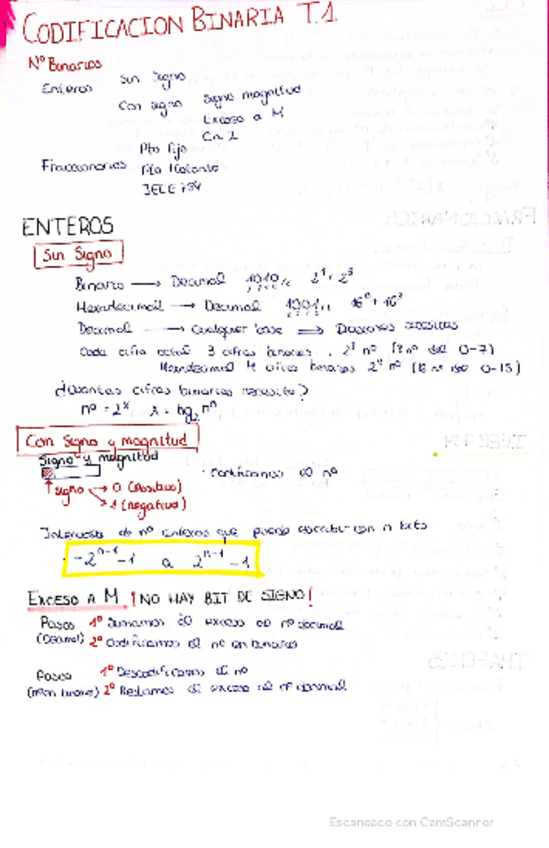 CODIFICACION BINARIA T.1
Nº Binarios
Enteros Sin Signo
Con signo Signo magnitud
Exceso a M
Ca 2
Pto Fijo
Fraccionarios Pto Flotante
IEEE 754
ENTEROS
Sin Signo
Binario → Decimal 1010 2¹ + 2³
Hexadecimal → Decimal 1001 16⁰ + 16³
Decimal → Cualquier base ⇒ Divisiones sucesivas
Cada cifra octal 3 cifras binarias . 2³ nº (8 nº del 0-7)
Hexadecimal 4 cifras binarias 2⁴ nº (16 nº del 0-15)
¿Cuantas cifras binarias necesito?
nº = 2ˣ x = log₂ nº
Con Signo y magnitud
Signo y magnitud
· Codificamos el nº
signo → 0 (Positivo)
→ 1 (negativo)
Intervalo de nº enteros que puedo escribir con n bits
-2ⁿ⁻¹-1 a 2ⁿ⁻¹-1
EXCESO A M ¡NO HAY BIT DE SIGNO!
Pasos 1º Sumamos el exceso al nº decimal
(Decimal) 2º Codificamos el nº en binario
Pasos 1º Descodificamos el nº
(nº en binario) 2º Restamos el exceso al nº decimal
Escaneado con CamScanner